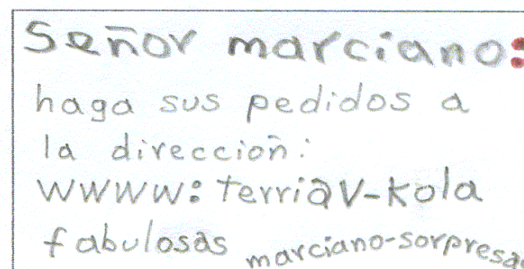 Señor marciano:
haga sus pedidos a
la dirección:
wwww: terriav-kola
fabulosas marciano-sorpresas